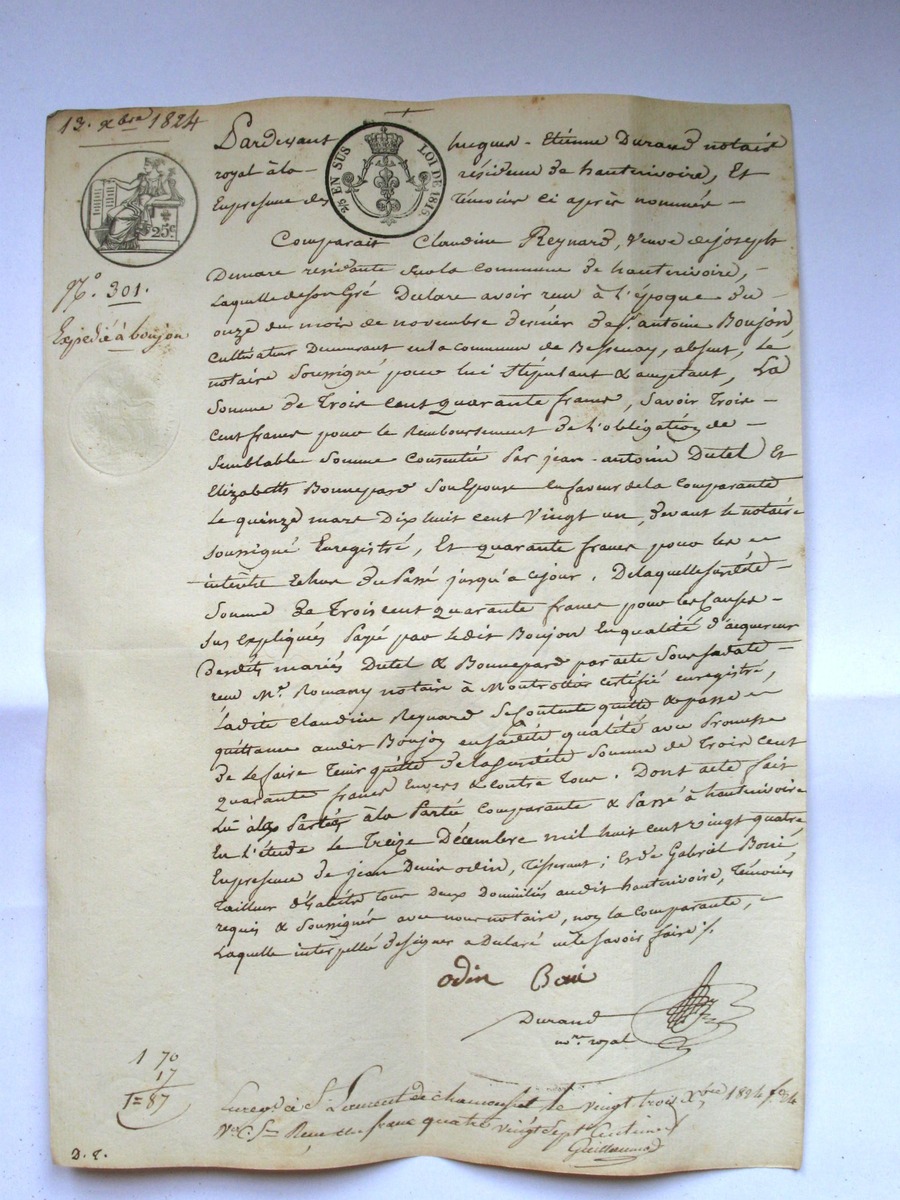 13. Xbre 1824
Pardevant hugues-Etienne Durand notaire
royal à la résidence de hauterivoire, Et
En presence des Témoins ci après nommés
EN SUS
LOI DE 1816
25c
N° 301.
Expedié à boujon
Comparait Claudine Reynard, veuve de joseph
Demare residante sur la commune de hauterivoire,
Laquelle de son Gré Declare avoir reçu à l'époque du
onze du mois de novembre dernier de Sr. antoine Boujon
Cultivateur Demeurant en la commune de Bessenay, absent, Le
notaire soussigné pour lui stipulant & acceptant, La
Somme de Trois cent quarante francs, savoir Trois
Cent francs pour le Remboursement de l'obligation de
Semblable Somme Consentie par jean-antoine Dutel Et
Elizabeth Bonnepard son Epouse en faveur de la Comparante
Le quinze mars Dix huit cent vingt un, devant le notaire
soussigné Enregistré, Et quarante francs pour les
interêts Echus du Passé jusqu'a ce jour. De laquelle susdite
Somme de Trois cent quarante francs pour les Causes
Sus expliquées Payé par ledit Boujon En qualité d'acquereur
Desdits mariés Dutel & Bonnepard par acte Sous sa date
reçu Me. Romany notaire à Montrottier certifié enregistré,
Ladite Claudine Reynard Se Contente quitte & passe
quittance audit Boujon en sadite qualité avec Promesse
de le faire Tenir quitte de la susdite Somme de Trois cent
quarante francs Envers & Contre Tous. Dont acte fait
Lu à la Partie Comparante & Passé à hauterivoire
En l'étude Le Treize Décembre mil huit cent vingt quatre
En presence de jean Denis odin, Tisserant; Et de Gabriel Boué,
Tailleur d'habits tous deux Domiciliés audit hauterivoire, Témoins
requis & Soussignés avec nous notaire, non la Comparante,
Laquelle interpellée de signer a Declaré ne le savoir faire ./.
odin Boué
Durand
nore royal
1 70
17
1=87
Enregé à St Laurent de chamousset le vingt trois Xbre 1824 fo 34
Vo C. 5e Reçu un franc quatre vingt sept Centimes
Guillermod
D. t.